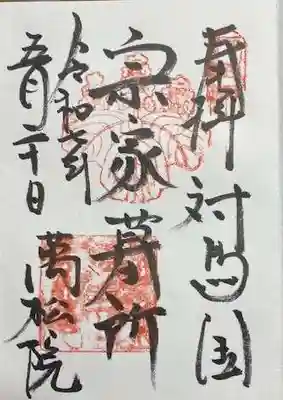 奉拝 対馬国
宗家墓所
令和六年
五月二十日
萬松院